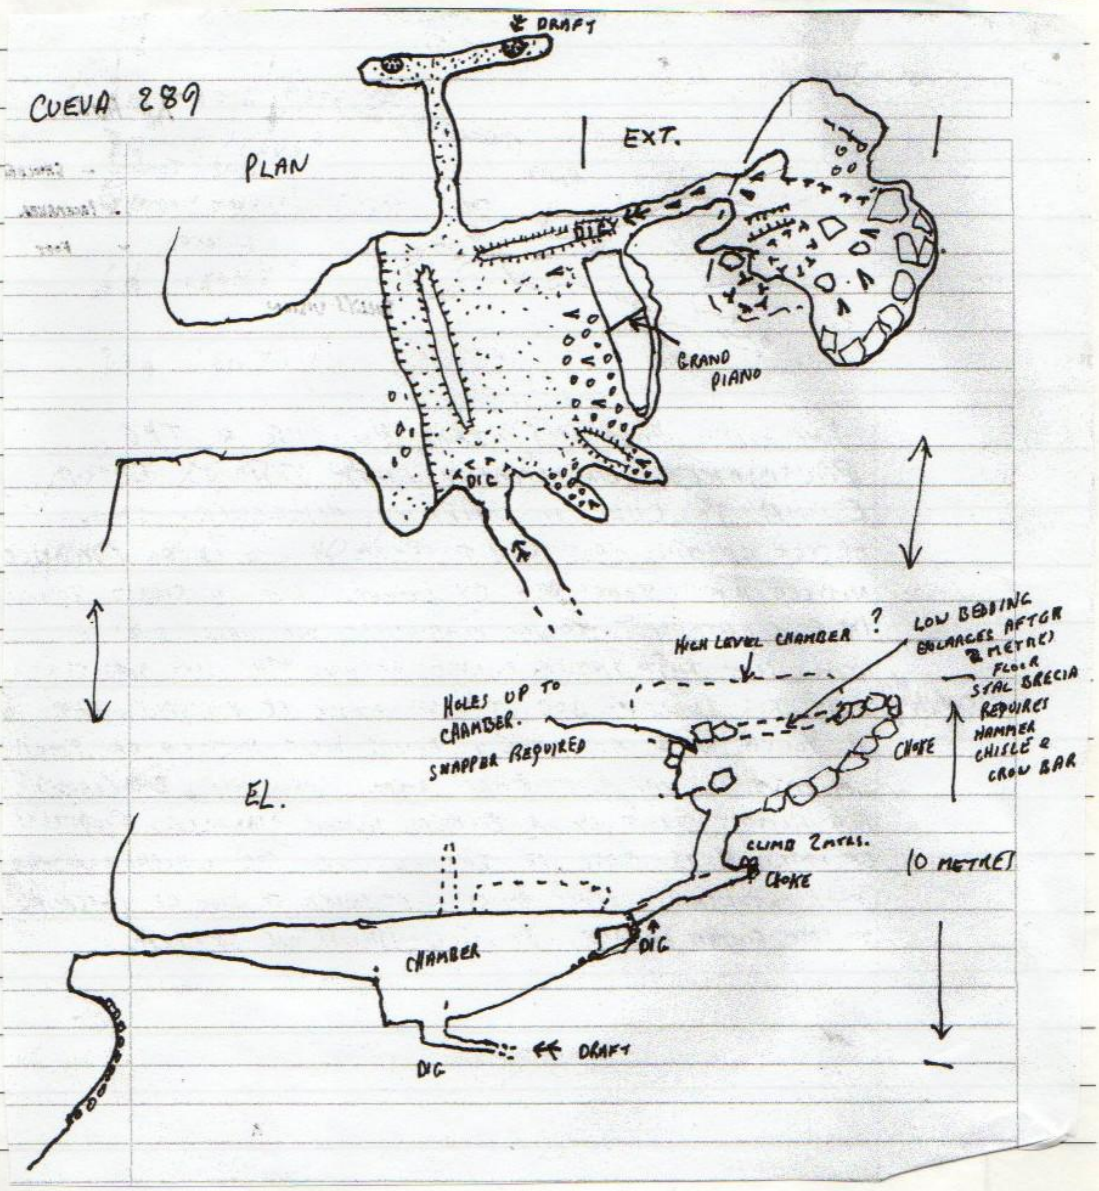 DRAFT
CUEVA 289
PLAN
EXT.
DIG
GRAND
PIANO
DIG
HIGH LEVEL CHAMBER ?
LOW BEDDING
ENLARGES AFTER
2 METRES
FLOOR
STAL BRECIA
REQUIRES
HAMMER
CHISLE &
CROW BAR
HOLES UP TO
CHAMBER.
SNAPPER REQUIRED
CHOKE
EL.
CLIMB 2MTRS.
CHOKE
10 METRES
CHAMBER
DIG
DRAFT
DIG